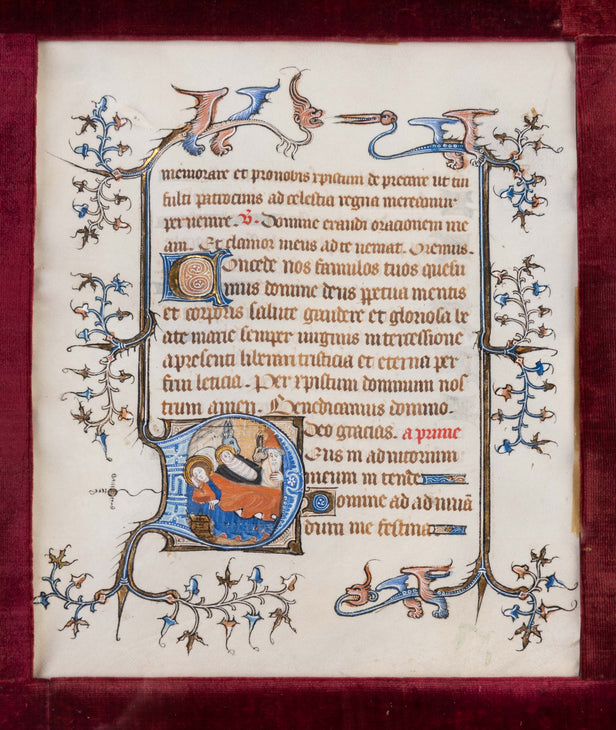 memorare et pro nobis xpistum de precare ut tui
fulti patrocinis ad celestia regna mereamur
peruenire. V. Domine exaudi orationem me
am. Et clamor meus ad te ueniat. Oremus.
Concede nos famulos tuos quesu
mus domine deus perpetua mentis
et corporis salute gaudere et gloriosa be
ate marie semper uirginis intercessione
a presenti liberari tristicia et eterna per
frui leticia. Per xpistum dominum nos
trum amen. Benedicamus domino.
Deo gracias. a prime
Deus in adiutorium
meum in tende
Domine ad adiuuan
dum me festina